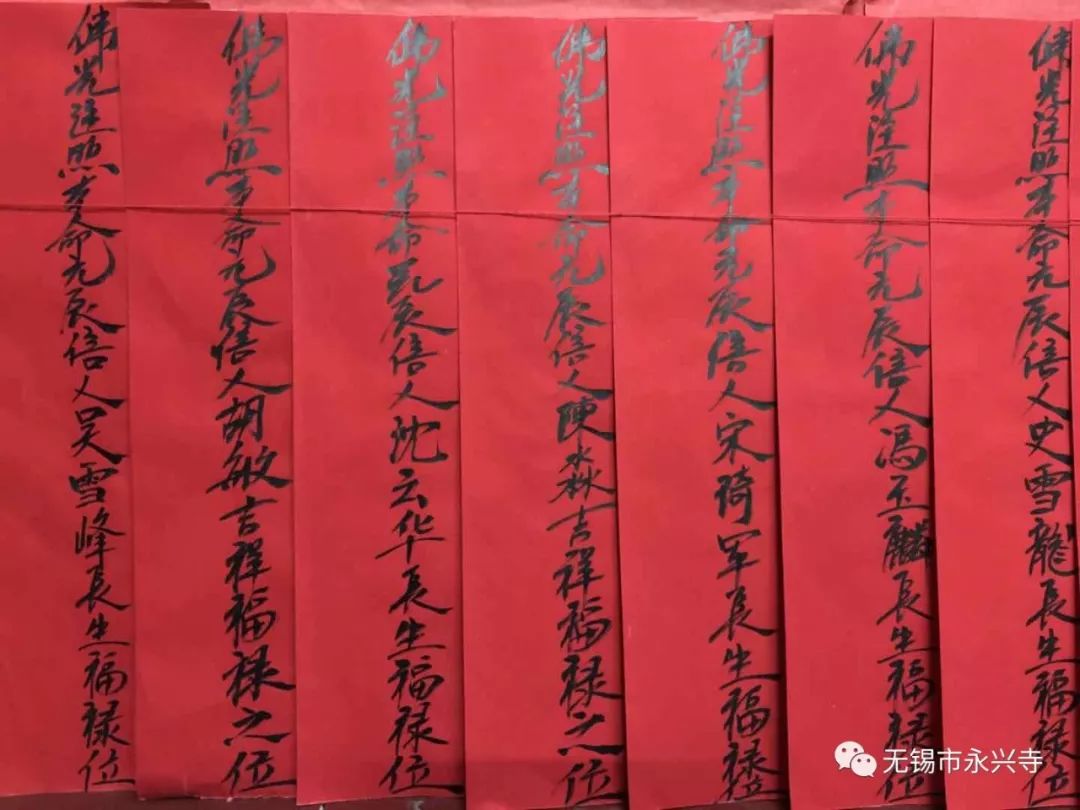 佛光注照本命元辰信人吴雪峰長生福禄位
佛光注照本命元辰信人胡敏吉祥福禄之位
佛光注照本命元辰信人沈云华長生福禄位
佛光注照本命元辰信人陳水秋吉祥福禄之位
佛光注照本命元辰信人宋琦军長生福禄位
佛光注照本命元辰信人冯玉麟長生福禄位
佛光注照本命元辰信人史雪龍長生福禄位
无锡市永兴寺